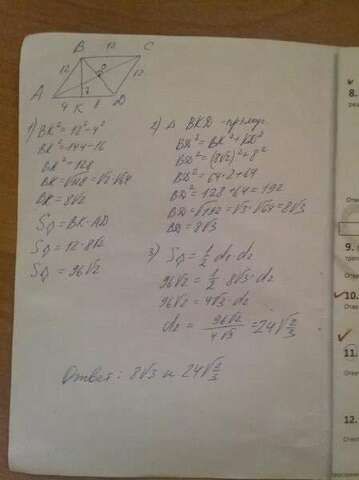 B 12 C
12 O 12
A 4 K 8 D
1) BK² = 12² - 4²
BK² = 144 - 16
BK² = 128
BK = √128 = √2·√64
BK = 8√2
S◊ = BK·AD
S◊ = 12·8√2
S◊ = 96√2
2) Δ BKD - прямоуг
BD² = BK² + KD²
BD² = (8√2)² + 8²
BD² = 64·2 + 64
BD² = 128 + 64 = 192
BD = √192 = √3·√64 = 8√3
BD = 8√3
3) S◊ = 1/2 d₁·d₂
96√2 = 1/2 · 8√3·d₂
96√2 = 4√3·d₂
d₂ = 96√2/4√3 = 24√2/3
Ответ: 8√3 и 24√2/3
8.
9.
10.
11.
12.